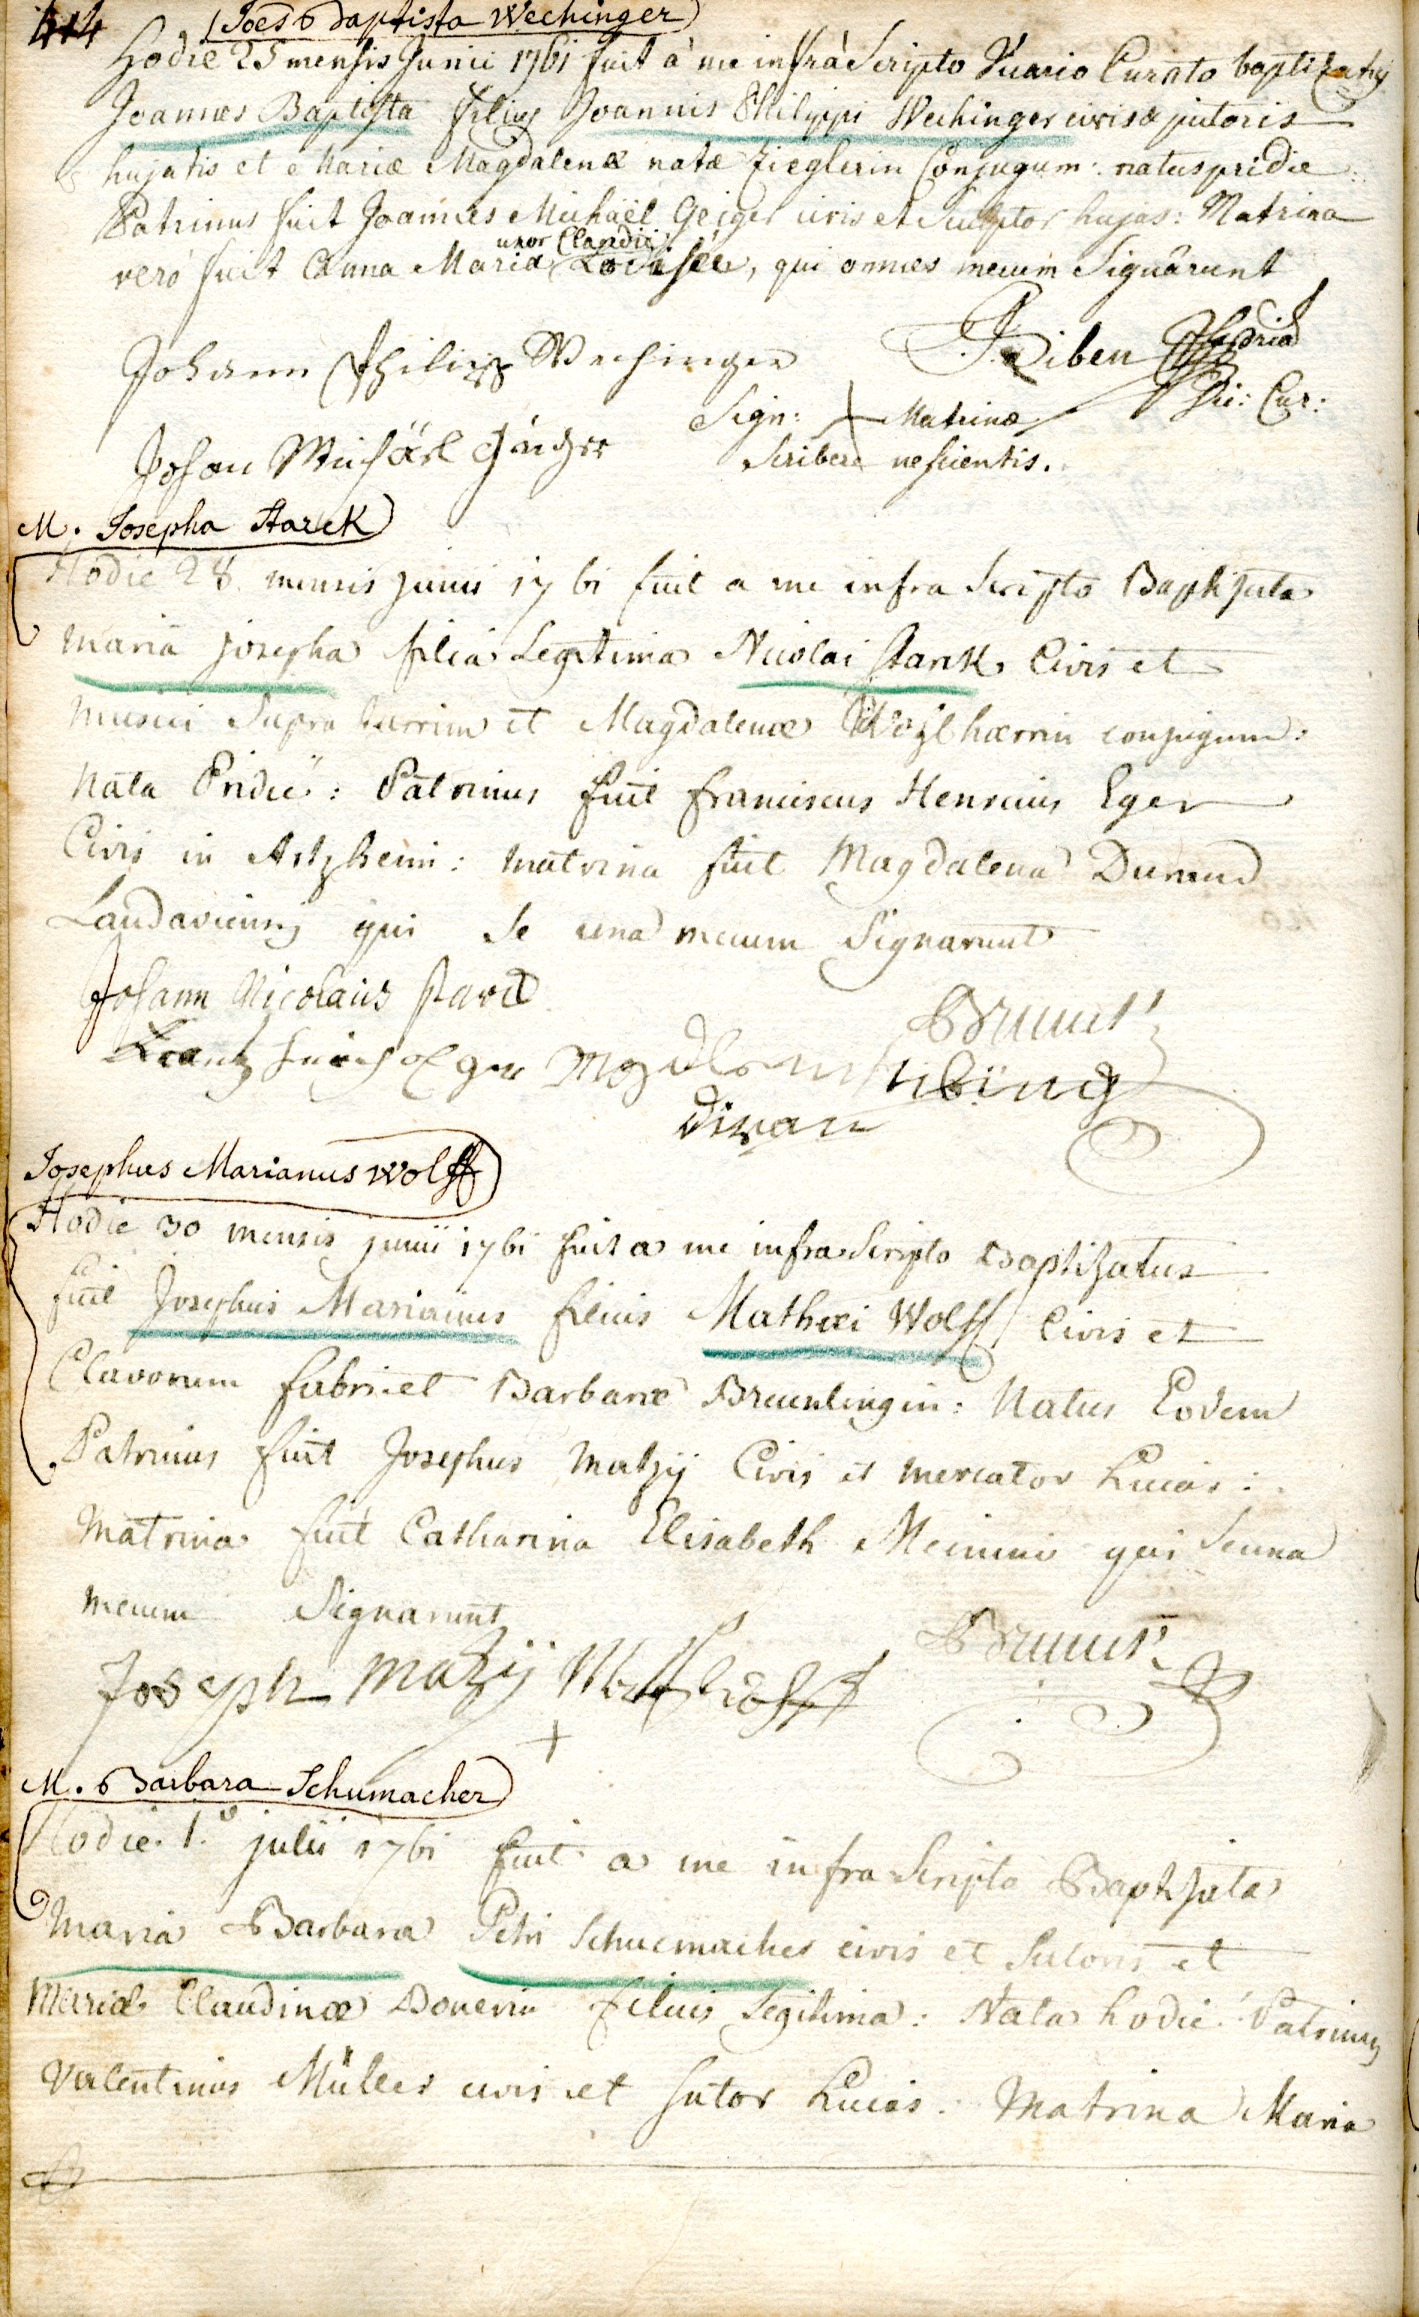 414
Joes Baptista Wechinger
Hodie 25 mensis Junii 1761 fuit à me infrà Scripto Vicario Curato baptizatus
Joannes Baptista filius Joannis Philippi Wechinger civis & pictoris
hujatis et Mariæ Magdalenæ natæ Zieglerin Conjugum: natus pridie:
Patrinus fuit Joannes Michaël Geiger civis et Sculptor hujas: Matrina
uxor Claudii
verò fuit Anna Maria, qui omnes mecum Signârunt
Johann Philipp Wechinger
Sign: + Matrinæ
Vic: Cur:
Johan Michäel
Scribere nescientis.
M. Josepha Starck
Hodie 28 mensis junii 1761 fuit a me infra Scripto Baptizata
maria josepha filia Legitima Nicolai Starck Civis et
musici Supra turrim et Magdalenæ conjugum:
Nata Pridie: Patrinus fuit franciscus Henricus Eger
Civis in Artzheim: matrina fuit Magdalena Durand
Landaviensis qui se una mecum Signarunt
Johann Nicolaus Starck
Frantz Eger
Josephus Marianus Wolff
Hodie 30 mensis junii 1761 fuit a me infra Scripto Baptizatus
fuit Josephus Marianus filius Mathæi Wolff Civis et
Clavorum fabri et Barbaræ Breunlingin: Natus Eodem
Patrinus fuit Josephus Matzij Civis et mercator hucas:
Matrina fuit Catharina Elisabeth qui Se una
mecum Signarunt
Joseph Matzij
+
M. Barbara Schumacher
Hodie 1.o julii 1761 fuit a me infra Scripto Baptizata
Maria Barbara Petri Schuemacher civis et Sutoris et
Mariæ Claudinæ filius Legitima: Nata hodie: Patrinus
Valentinus Müller civis et sutor hucas: Matrina Maria